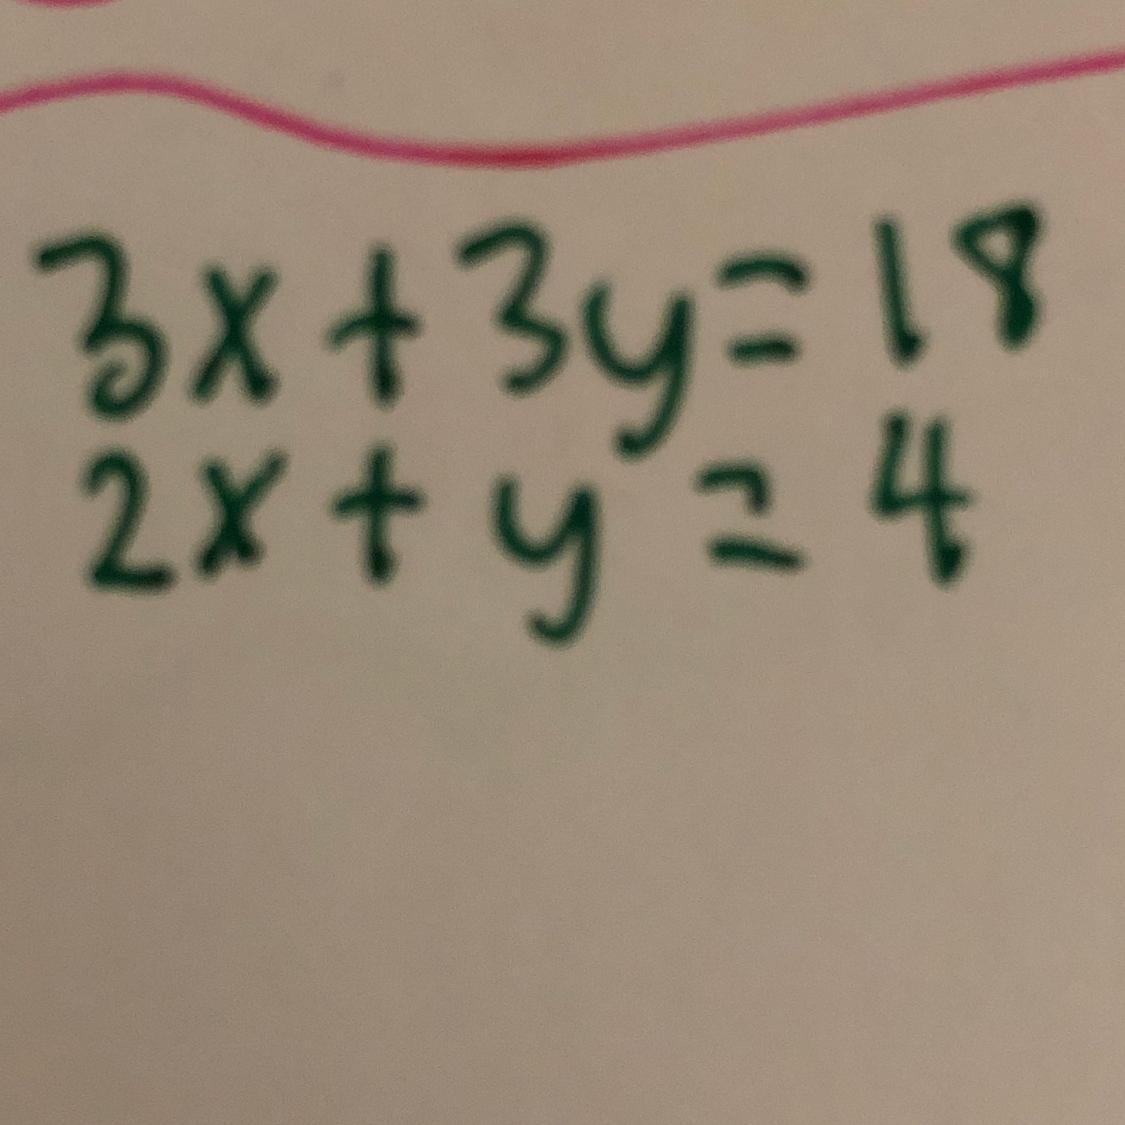 3x + 3y = 18
2x + y = 4